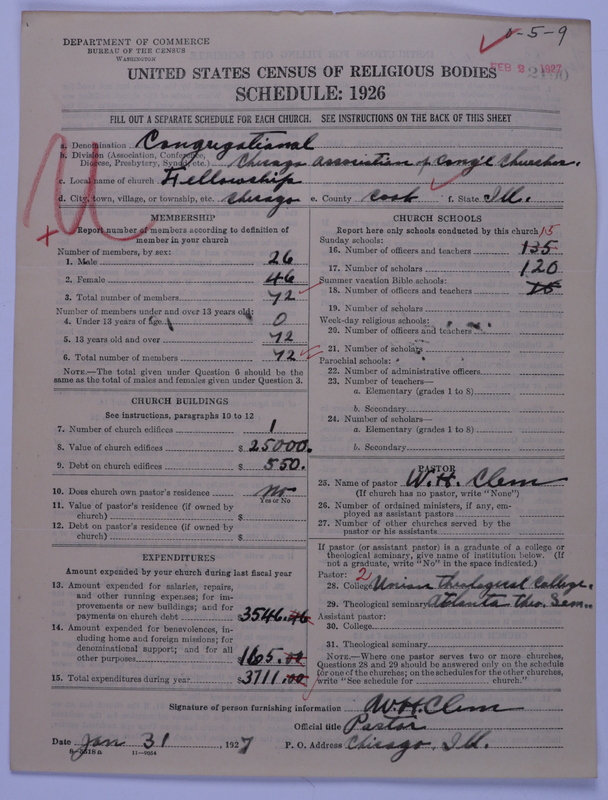 DEPARTMENT OF COMMERCE
BUREAU OF THE CENSUS
WASHINGTON
1-5-9
FEB 2 1927
UNITED STATES CENSUS OF RELIGIOUS BODIES
SCHEDULE: 1926
FILL OUT A SEPARATE SCHEDULE FOR EACH CHURCH. SEE INSTRUCTIONS ON THE BACK OF THIS SHEET
a. Denomination Congregational
b. Division (Association, Conference, Diocese, Presbytery, Synod, etc.) Chicago Association of Cong'l Churches.
c. Local name of church Fellowship
d. City, town, village, or township, etc. Chicago e. County Cook f. State Ill.
MEMBERSHIP
Report number of members according to definition of member in your church
Number of members, by sex:
1. Male 26
2. Female 46
3. Total number of members 72
Number of members under and over 13 years old:
4. Under 13 years of age 0
5. 13 years old and over 72
6. Total number of members 72
NOTE.—The total given under Question 6 should be the same as the total of males and females given under Question 3.
CHURCH BUILDINGS
See instructions, paragraphs 10 to 12
7. Number of church edifices 1
8. Value of church edifices $25000.
9. Debt on church edifices $550.
10. Does church own pastor's residence no
Yes or No
11. Value of pastor's residence (if owned by church) $
12. Debt on pastor's residence (if owned by church) $
EXPENDITURES
Amount expended by church during last fiscal year
13. Amount expended for salaries, repairs, and other running expenses; for improvements or new buildings; and for payments on church debt $3546.46
14. Amount expended for benevolences, including home and foreign missions; for denominational support; and for all other purposes $165.00
15. Total expenditures during year $3711.00
CHURCH SCHOOLS
Report here only schools conducted by this church
Sunday schools:
15
16. Number of officers and teachers 135
17. Number of scholars 120
Summer vacation Bible schools:
18. Number of officers and teachers
19. Number of scholars
Week-day religious schools:
20. Number of officers and teachers
21. Number of scholars
Parochial schools:
22. Number of administrative officers
23. Number of teachers—
a. Elementary (grades 1 to 8)
b. Secondary
24. Number of scholars—
a. Elementary (grades 1 to 8)
b. Secondary
PASTOR
25. Name of pastor W.H. Clem
(If church has no pastor, write "None")
26. Number of ordained ministers, if any, employed as assistant pastors
27. Number of other churches served by the pastor or his assistants
If pastor (or assistant pastor) is a graduate of a college or theological seminary, give name of institution below. (If not a graduate, write "No" in the space indicated.)
Pastor: 2
28. College Union Theological College.
29. Theological seminary Atlanta Theo. Sem.
Assistant pastor:
30. College
31. Theological seminary
NOTE.—Where one pastor serves two or more churches, Questions 28 and 29 should be answered only on the schedule for one of the churches; on the schedules for the other churches, write "See schedule for church."
Signature of person furnishing information W.H. Clem
Official title Pastor
Date Jan 31, 1927 P. O. Address Chicago, Ill.
8-5518 n 11-9054